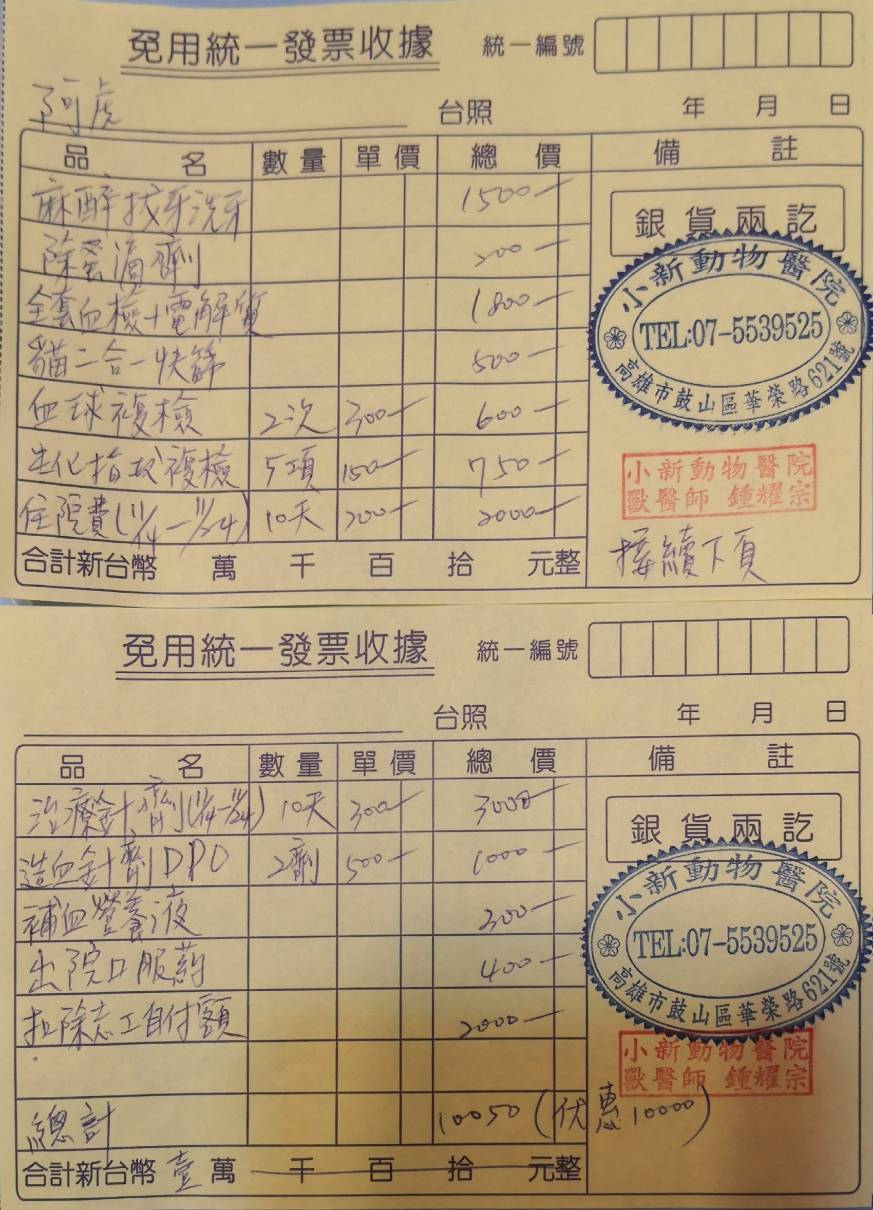 免用統一發票收據 統一編號
阿虎 台照 年 月 日
品名 數量 單價 總價 備註
麻醉拔牙洗牙 1500-
除蚤滴劑 200-
全套血檢+電解質 1800-
貓二合一快篩 500-
血球複檢 2次 300- 600-
生化指數複檢 5項 150- 750-
住院費(11/14-11/24) 10天 200- 2000-
合計新台幣 萬 千 百 拾 元整
銀貨兩訖
小新動物醫院
TEL:07-5539525
高雄市鼓山區華榮路621號
小新動物醫院
獸醫師 鍾耀宗
接續下頁
免用統一發票收據 統一編號
台照 年 月 日
品名 數量 單價 總價 備註
治療針劑(11/14-11/24) 10天 300- 3000-
造血針劑DPO 2劑 500- 1000-
補血營養液 300-
出院口服葯 400-
扣除志工自付額 2000-
總計 10050 (优惠10000)
合計新台幣 壹萬 千 百 拾 元整
銀貨兩訖
小新動物醫院
TEL:07-5539525
高雄市鼓山區華榮路621號
小新動物醫院
獸醫師 鍾耀宗